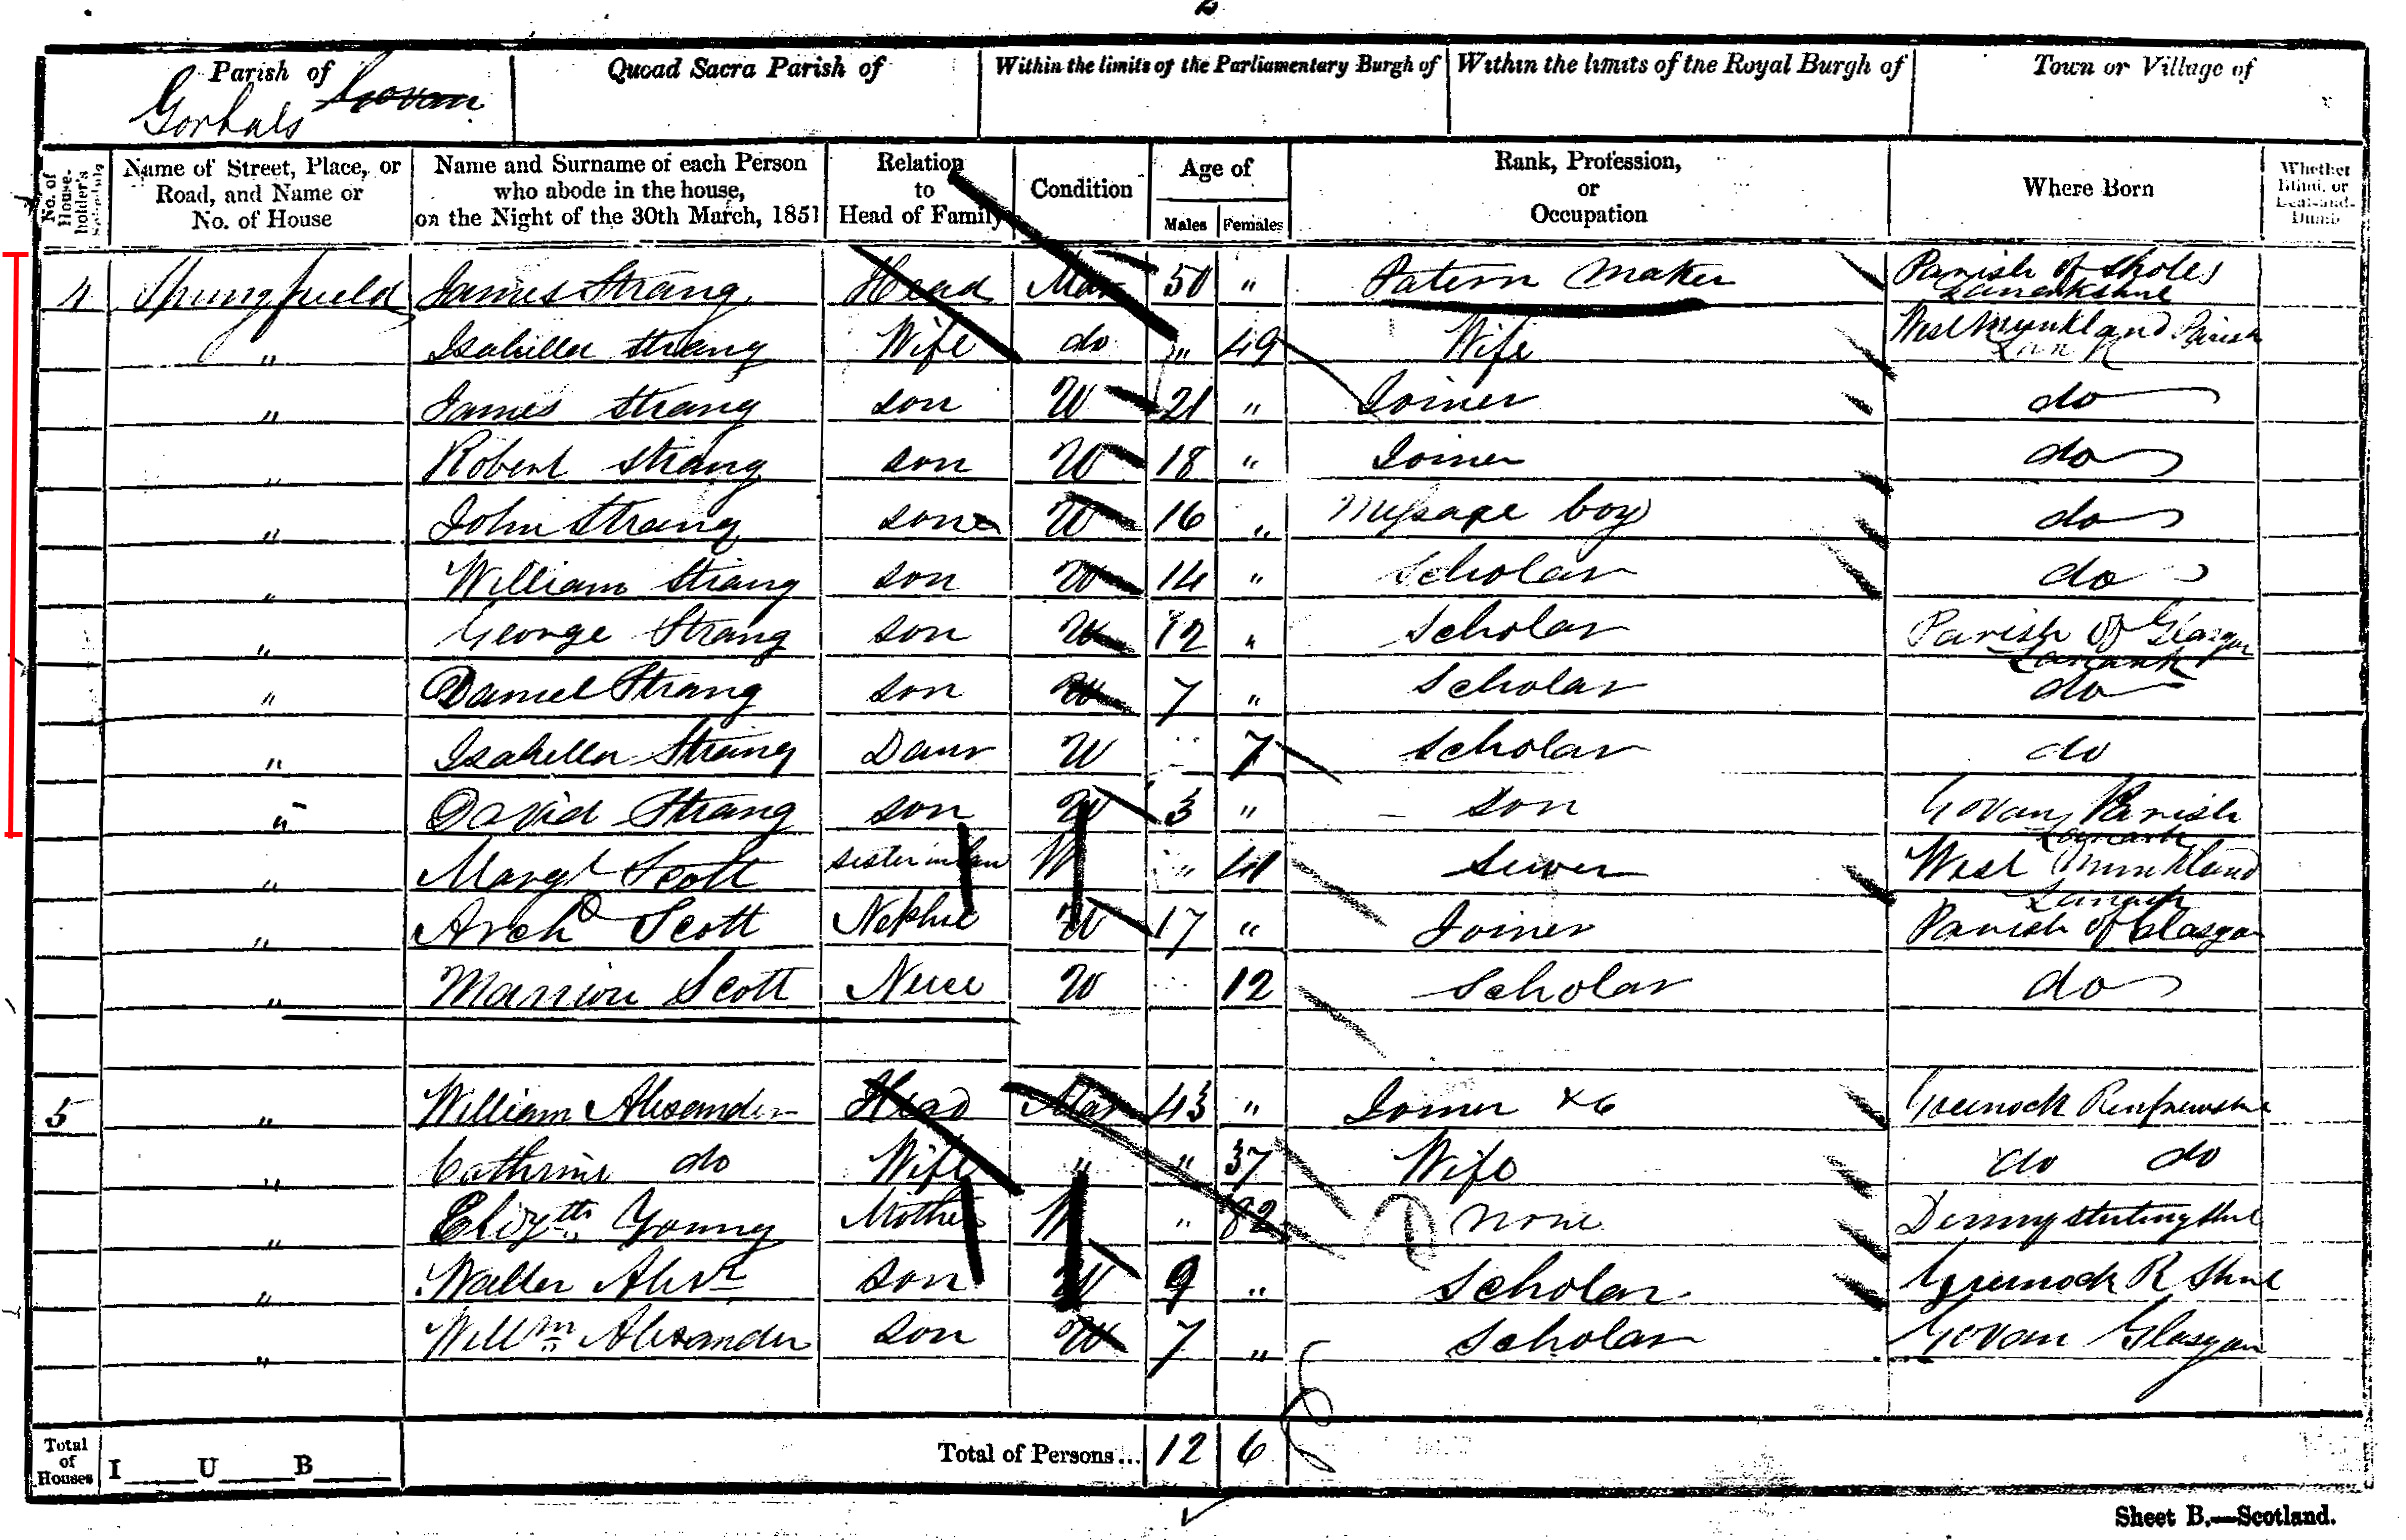 2
Parish of Govan
Gorbals
Quoad Sacra Parish of
Within the limits of the Parliamentary Burgh of
Within the limits of the Royal Burgh of
Town or Village of
No. of House-holder's Schedule
Name of Street, Place, or Road, and Name or No. of House
Name and Surname of each Person who abode in the house, on the Night of the 30th March, 1851
Relation to Head of Family
Condition
Age of
Males Females
Rank, Profession, or Occupation
Where Born
Whether Blind, or Deaf-and-Dumb
4 Springfield James Strang Head Mar 50 " Patern Maker Parish of Shotes Lanarkshire
" Isabella Strang Wife do " 49 Wife West Munkland Parish Lank
" James Strang son U 21 " Joiner do
" Robert Strang son U 18 " Joiner do
" John Strang son U 16 " Message boy do
" William Strang son U 14 " Scholar do
" George Strang son U 12 " Scholar Parish of Glasgow Lanark
" Daniel Strang son U 7 " Scholar do
" Isabella Strang Daur U " 7 Scholar do
" David Strang son U 3 " son Govan Parish Lanark
" Margt Scott sister in law W " 41 Sewer West Munkland Lanark
" Archd Scott Nephue U 17 " Joiner Parish of Glasgow
" Marrion Scott Neice U 12 Scholar do
5 " William Alexander Head Mar 43 " Joiner x6 Greenock Renfrewshire
" Cathrine do Wife " " 37 Wife do do
" Elizth Young Mother W " 82 None Denny Sterlingshire
" Walter Alexr son U 9 " Scholar Greenock R Shire
" Willm Alexander son U 7 " Scholar Govan Glasgow
Total of Houses I U B Total of Persons... 12 6
Sheet B.—Scotland.